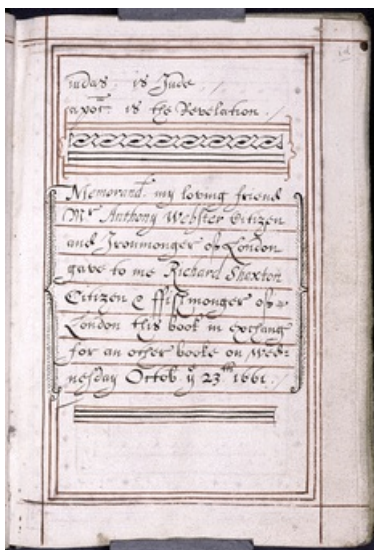 iudas. is Jude
apoc. is the Revelation.
Memorand. my loving friend
Mr Anthony Webster Citizen
and Ironmonger of London
gave to me Richard Shexton
Citizen & ffishmonger of
London this book in exchang
for an other booke on Wed:
nesday Octob. ye 23th 1661.